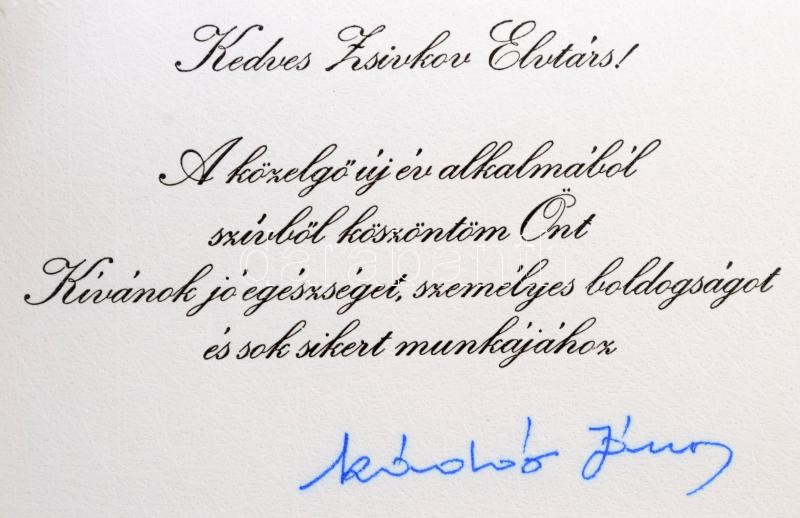 Kedves Zsivkov Elvtárs!
A közelgő új év alkalmából
szívből köszöntöm Önt
darabanth
Kívánok jó egészséget, személyes boldogságot
és sok sikert munkájához
Kádár János